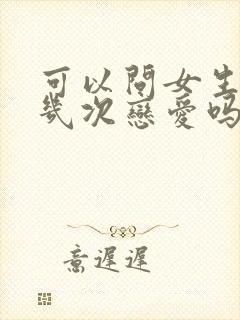 可以問女生
幾次戀愛吗
意遲遲